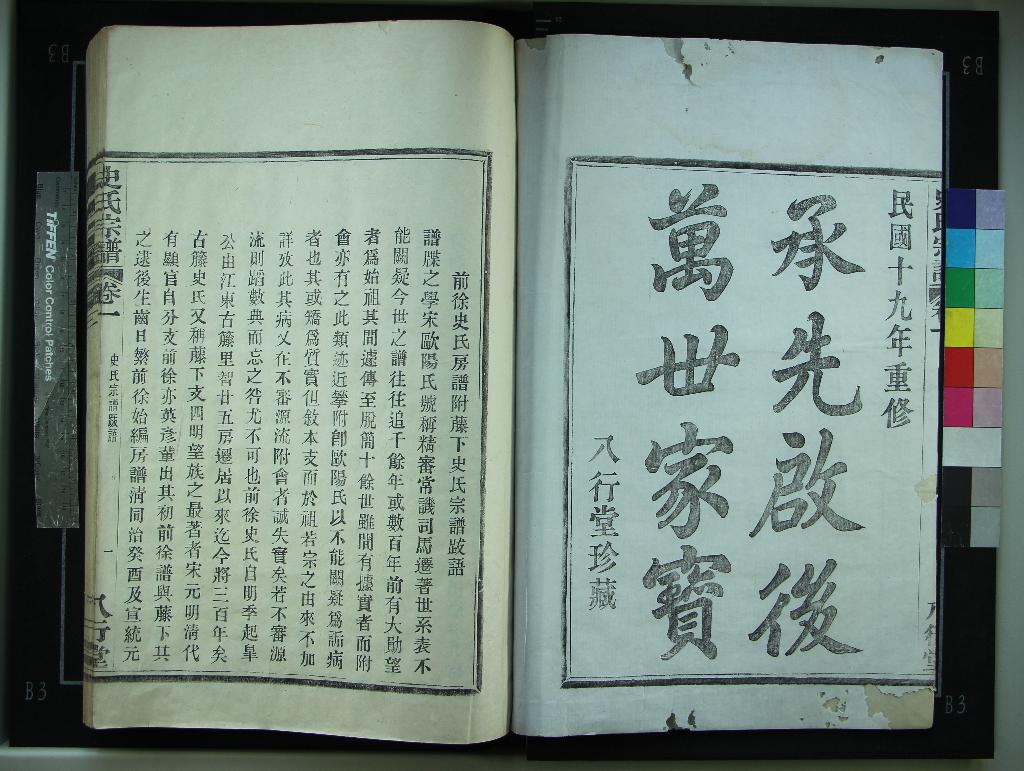 民國十九年重修
承先啟後
萬世家寶
八行堂珍藏
前徐史氏房譜附藤下史氏宗譜跋語
譜牒之學宋歐陽氏號稱精審常譏司馬遷著世系表不
能闕疑今世之譜往往追千餘年或數百年前有大勛望
者爲始祖其間遠傳至脫簡十餘世雖間有據實者而附
會亦有之此類迹近攀附卽歐陽氏以不能闕疑爲詬病
者也其或矯爲質實但敘本支而於祖若宗之由來不加
詳攷此其病又在不審源流附會者誠失實矣若不審源
流則蹈數典而忘之咎尤不可也前徐史氏自明季起單
公出江東古籐里智廿五房遷居以來迄今將三百年矣
古籐史氏又稱藤下支四明望族之最著者宋元明清代
有顯官自分支前徐亦英彥輩出其初前徐譜與藤下其
之逮後生齒日繁前徐始編房譜清同治癸酉及宣統元
史氏宗譜
卷一
史氏宗譜跋語
一
八行堂
TIFFEN Color Control Patches
B3
B3
B3
B3